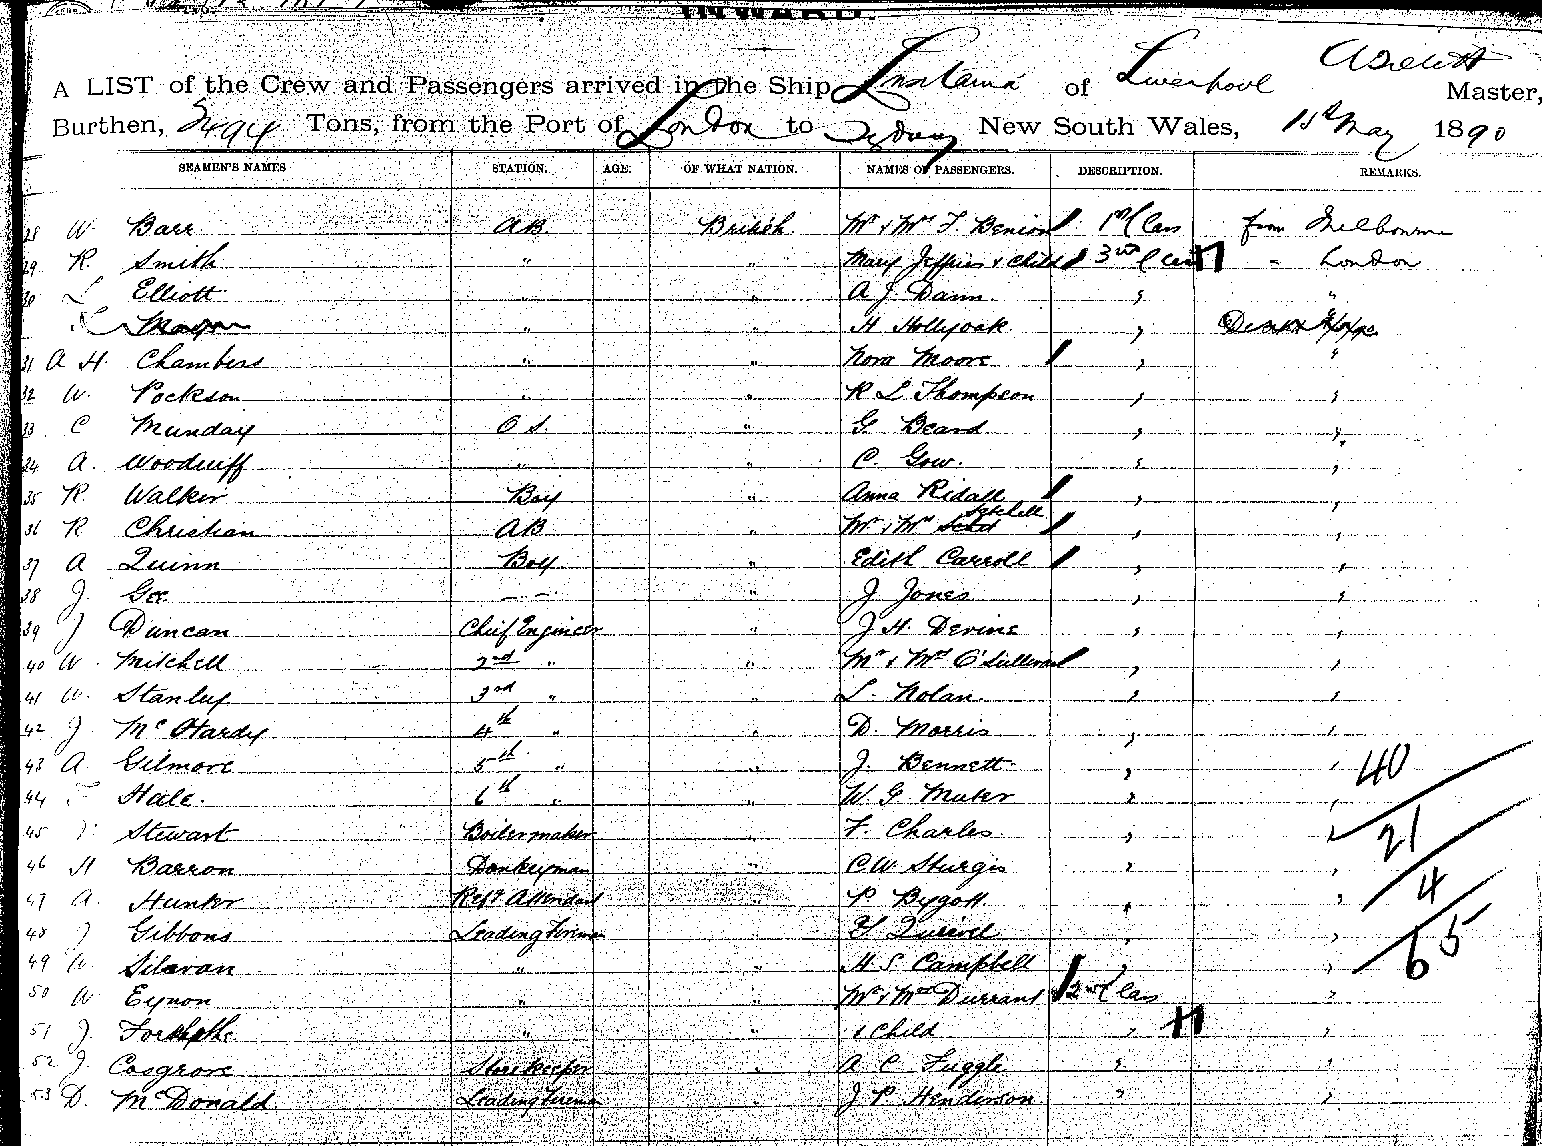 INWARD.
A LIST of the Crew and Passengers arrived in the Ship of Liverpool Master,
Burthen, 3494 Tons, from the Port of London to Sydney New South Wales, 1st May 1890
SEAMEN'S NAMES STATION. AGE. OF WHAT NATION. NAMES OF PASSENGERS. DESCRIPTION. REMARKS.
W. Barr AB. British Mr & Mrs F Benion 1st Class from Melbourne
29 R. Smith " " Mary Jeffries & Child 3rd Class " London
30 L Elliott " " A J Dann " "
" " H Hollyoak "
31 A H. Chambers " " Nora Moore " "
32 W. Pockson " " R L Thompson " "
33 C Munday O S. " G. Beard " "
34 A. Woodruff " " C. Gow. " "
35 R. Walker Boy " Anna Ridall " "
36 R Christian AB " Mr & Mrs " "
37 A Quinn Boy " Edith Carroll " "
38 J. Gee " " J Jones " "
39 J Duncan Chief Engineer " J H Devine " "
40 W. Mitchell 2nd " " Mr & Mrs O'Sullivan " "
41 W. Stanley 3rd " " L. Nolan " "
42 J. McHardy 4th " " D. Morris " "
43 A Gilmore 5th " " J. Bennett " "
44 Hale. 6th " " W G " "
45 Stewart Boilermaker " F. Charles " "
46 H Barron Donkeyman " C W Sturgis " "
47 A. Hunter Refr Attendant " P Bygott " "
48 J Gibbons Leading Fireman " "
49 W " " H S Campbell " "
50 W Eynon " " Mr & Mrs Durrant 2nd Class "
51 J. " " & Child " "
52 J. Cosgrove Storekeeper A C Fuggle " "
53 D. McDonald Leading Fireman J P Henderson " "
40
21
4
65